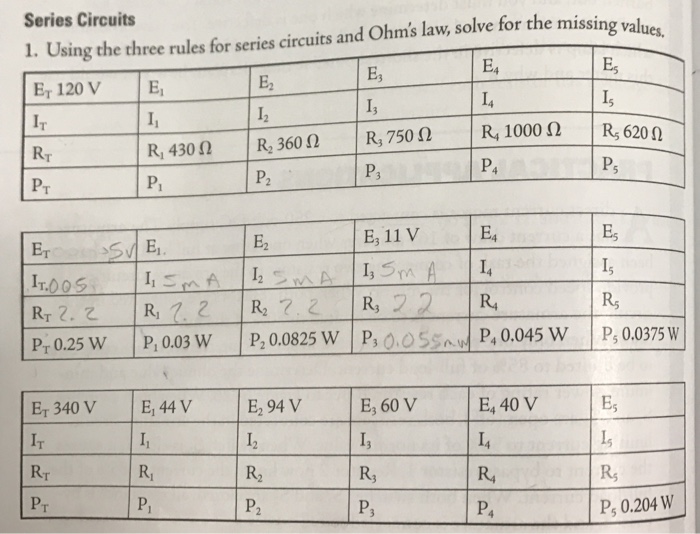 Series Circuits
1. Using the three rules for series circuits and Ohm's law, solve for the missing values.
E_T 120 V E₁ E₂ E₃ E₄ E₅
I_T I₁ I₂ I₃ I₄ I₅
R_T R₁ 430 Ω R₂ 360 Ω R₃ 750 Ω R₄ 1000 Ω R₅ 620 Ω
P_T P₁ P₂ P₃ P₄ P₅
E_T 5V E₁ E₂ E₃ 11 V E₄ E₅
I_T .005 I₁ 5mA I₂ 5mA I₃ 5mA I₄ I₅
R_T 2.2 R₁ 2.2 R₂ 2.2 R₃ 22 R₄ R₅
P_T 0.25 W P₁ 0.03 W P₂ 0.0825 W P₃ 0.055 P₄ 0.045 W P₅ 0.0375 W
E_T 340 V E₁ 44 V E₂ 94 V E₃ 60 V E₄ 40 V E₅
I_T I₁ I₂ I₃ I₄ I₅
R_T R₁ R₂ R₃ R₄ R₅
P_T P₁ P₂ P₃ P₄ P₅ 0.204 W